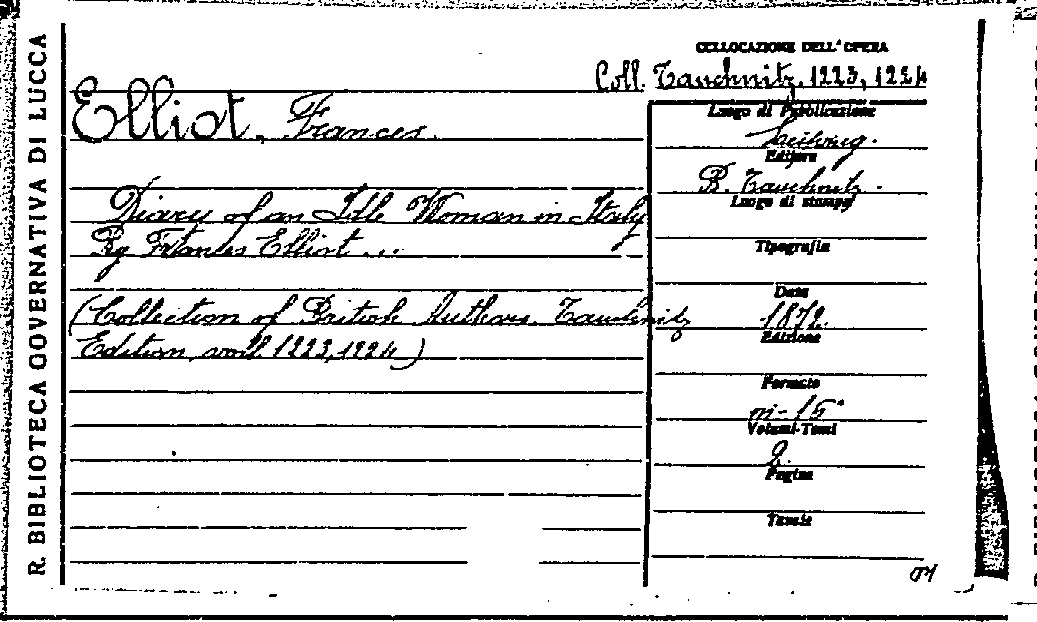 R. BIBLIOTECA GOVERNATIVA DI LUCCA
COLLOCAZIONE DELL'OPERA
Coll. Tauchnitz. 1223, 1224
Elliot, Frances.
Diary of an Idle Woman in Italy
By Frances Elliot ...
(Collection of British Authors Tauchnitz
Edition, voll. 1223, 1224)
Luogo di Pubblicazione
Leipzig.
Editore
B. Tauchnitz.
Luogo di stampa
Tipografia
Data
1872.
Edizione
Formato
in-16°
Volumi-Tomi
2.
Pagine
Tavole